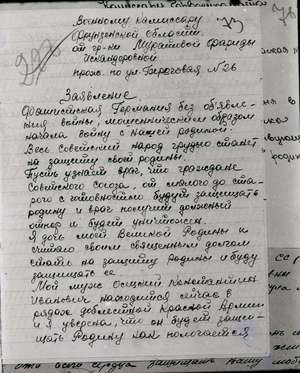 Военному комиссару
Фрунзенской Области
от гр-ки Муратовой Фариды
Искандеровной
прож. по ул. Береговая № 26
Заявление
Фашистская Германия без объявле-
ния войны, мошенническим образом
начала войну с нашей родиной.
Весь Советский народ грудью станет
на защиту своей родины.
Пусть узнает враг, что граждане
Советского Союза, от малого до ста-
рого с готовностью будет защищать
родину и враг получит должный
отпор и будет уничтожен.
Я дочь моей Великой Родины и
считаю своим священным долгом
стать на защиту родины и буду
защищать ее.
Мой муж Константин
Иванович находится сейчас в
рядах доблестной Красной Армии
и я уверена, что он будет защи-
щать Родину как полагается